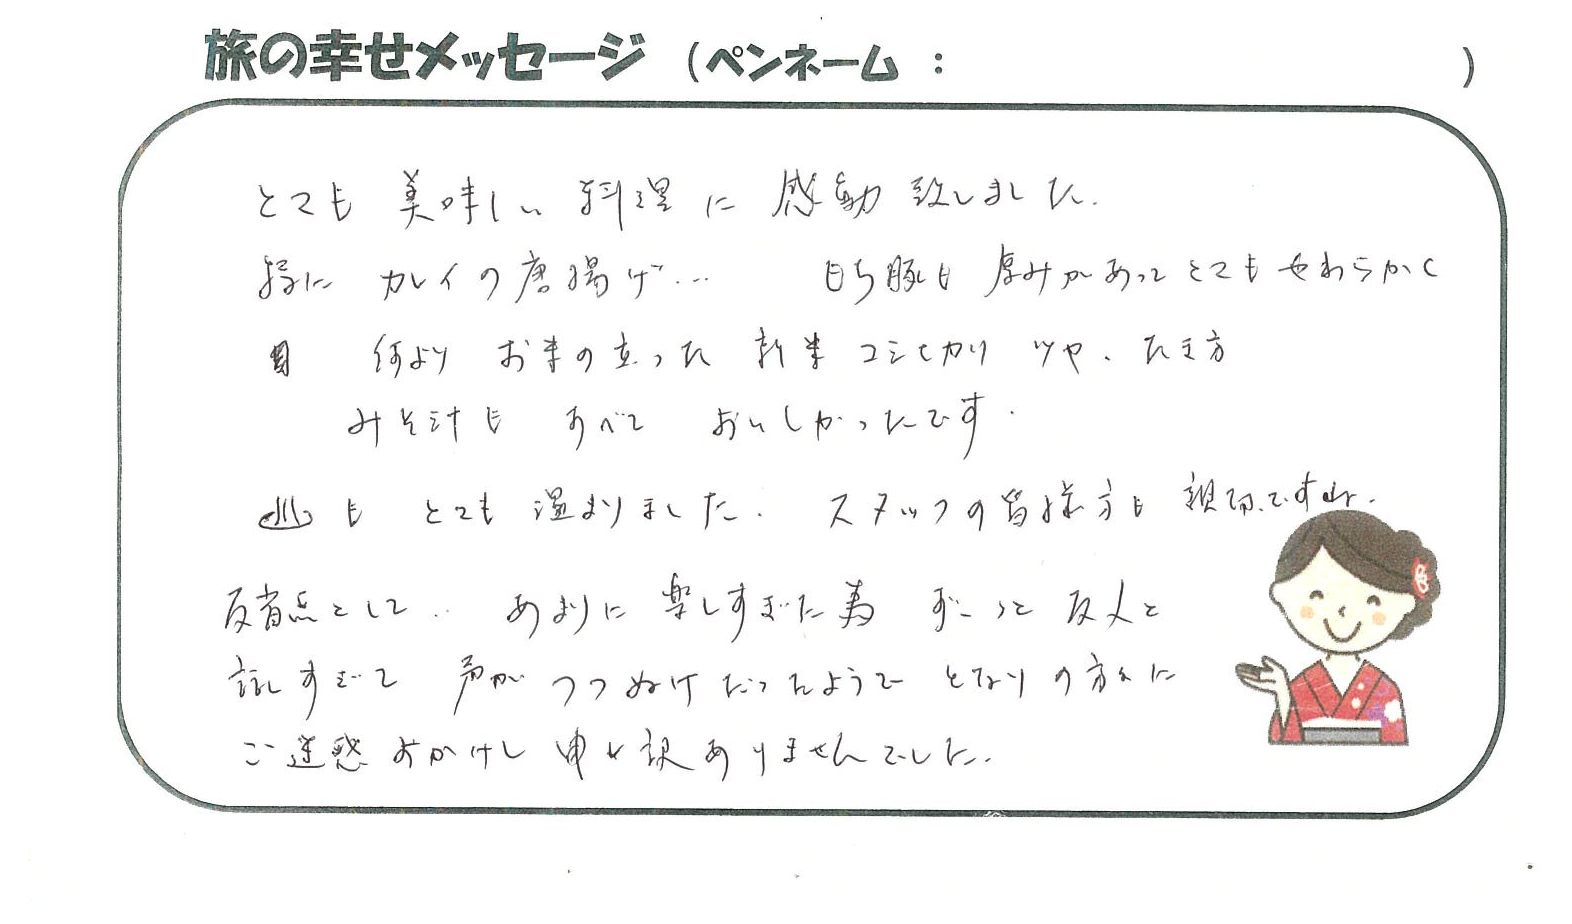 旅の幸せメッセージ （ペンネーム： ）
とても 美味しい 料理に 感動 致しました.
特に カレイの唐揚げ… もち豚も 厚みがあってとてもやわらかく
何より お米の立った 新米 コシヒカリ ツヤ、たき方
みそ汁も すべて おいしかったです.
♨も とても 温まりました. スタッフの皆様方も 親切ですね.
反省点として.. あまりに 楽しすぎた為 ずーっと 友人と
話しすぎて 声が つつぬけだったようで となりの方々に
ご迷惑おかけし 申し訳ありませんでした.